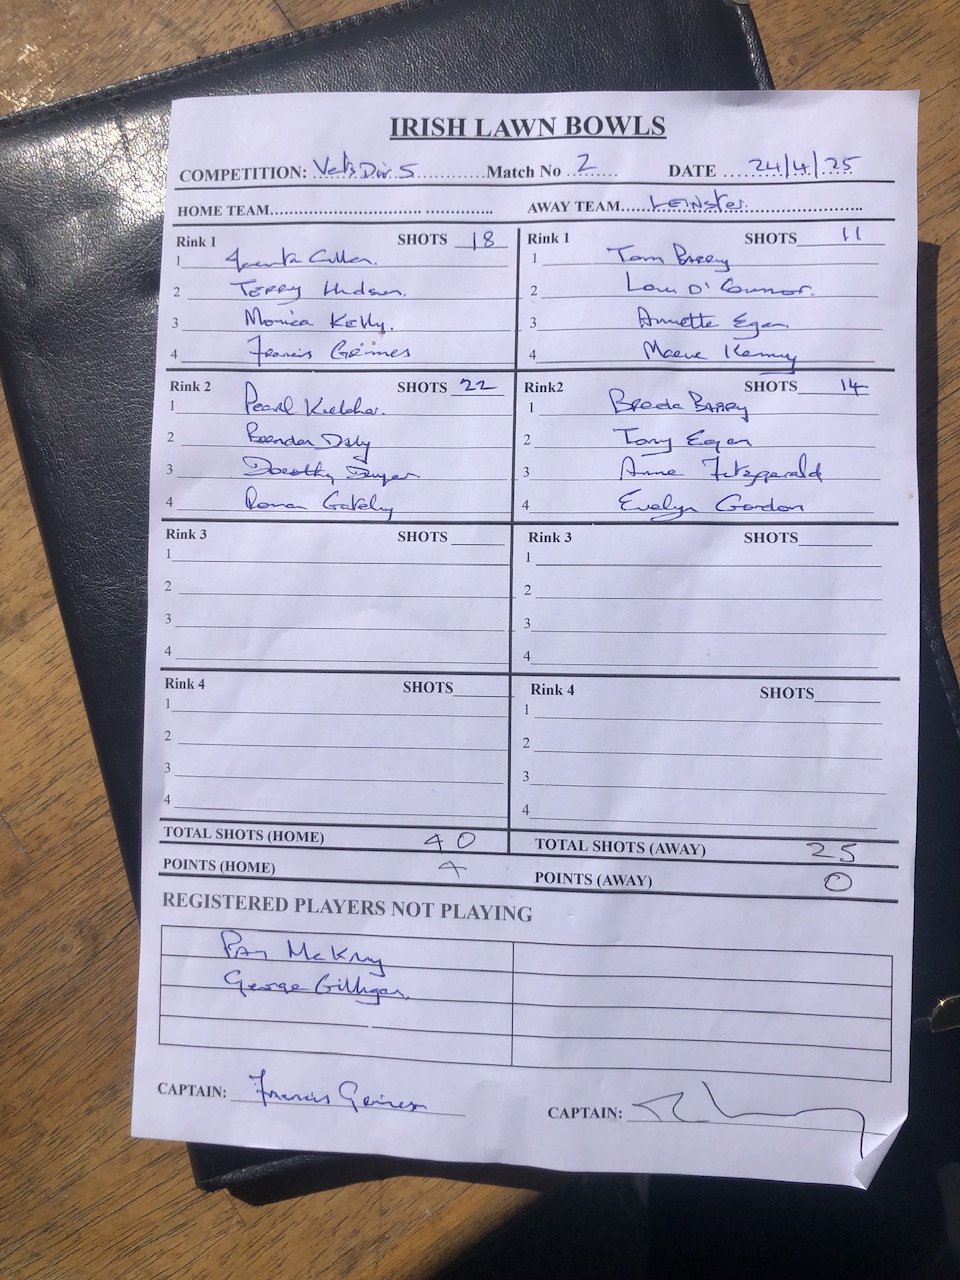 IRISH LAWN BOWLS
COMPETITION: Vets Div 5 Match No 2 DATE 24/4/25
HOME TEAM AWAY TEAM Leinster
Rink 1 SHOTS 18 Rink 1 SHOTS 11
1 Cullen. 1 Tom BARRY
2 TERRY Hudson. 2 Lou O'Connor.
3 Monica Kelly. 3 Annette Egan
4 Francis Grimes 4 Maeve Kenny
Rink 2 SHOTS 22 Rink2 SHOTS 14
1 Pearl 1 Breda BARRY
2 Brendan Daly 2 Tony Egan
3 Dorothy Dwyer 3 Anne Fitzgerald
4 Ronan Gately 4 Evelyn Gordon
Rink 3 SHOTS Rink 3 SHOTS
1 1
2 2
3 3
4 4
Rink 4 SHOTS Rink 4 SHOTS
1 1
2 2
3 3
4 4
TOTAL SHOTS (HOME) 40 TOTAL SHOTS (AWAY) 25
POINTS (HOME) 4 POINTS (AWAY) 0
REGISTERED PLAYERS NOT PLAYING
George Gilligan
CAPTAIN: Francis Grimes CAPTAIN: